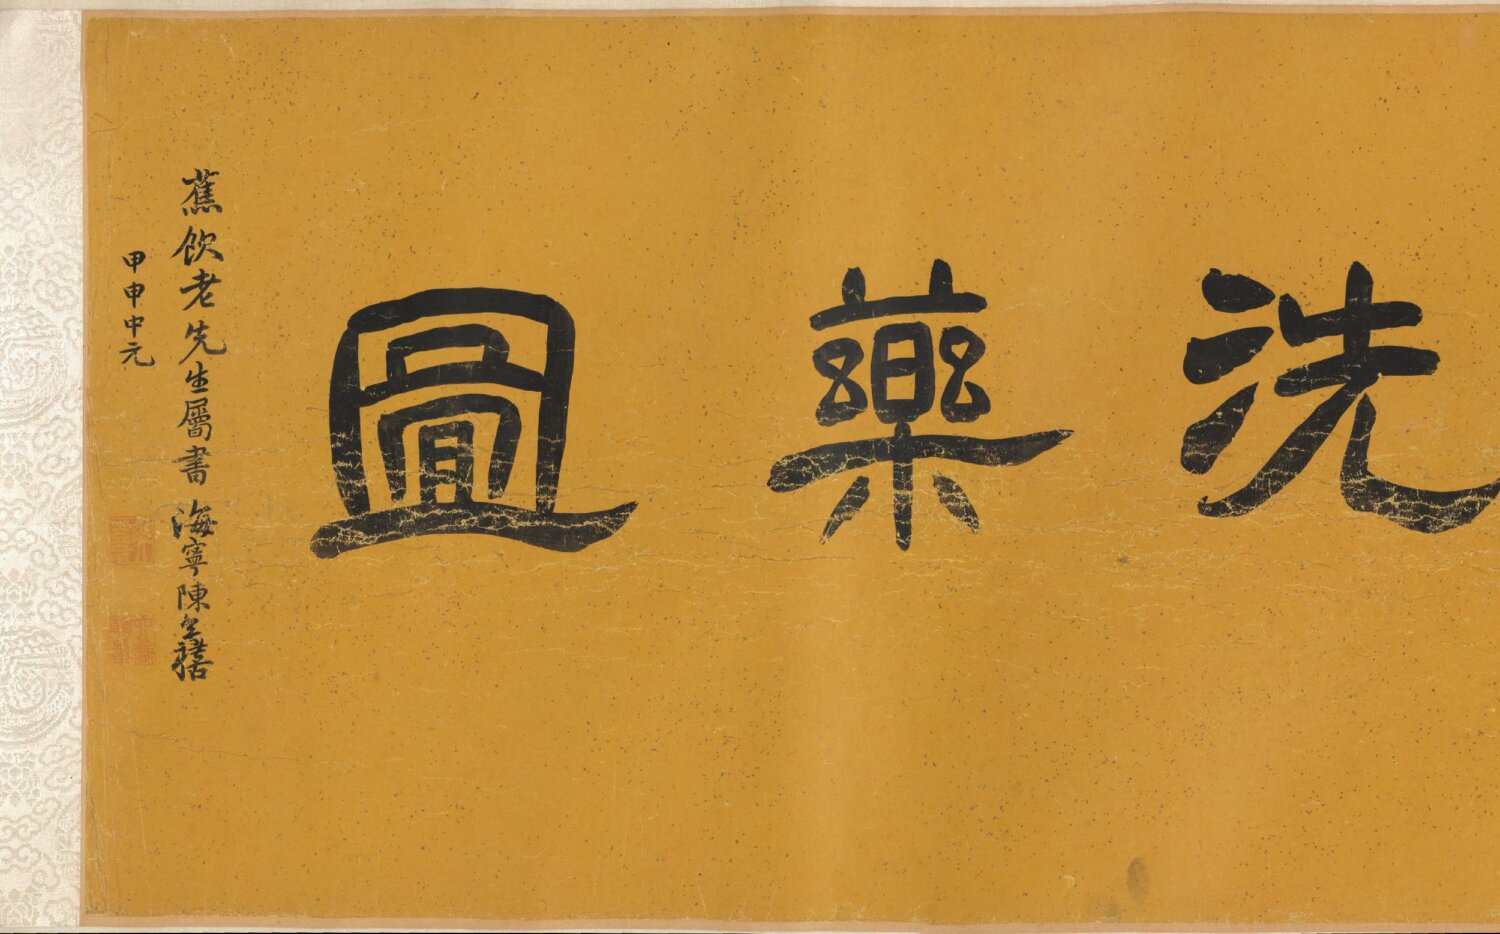 洗藥圖
蕉飲老先生屬書 海寧陳奕禧
甲申中元